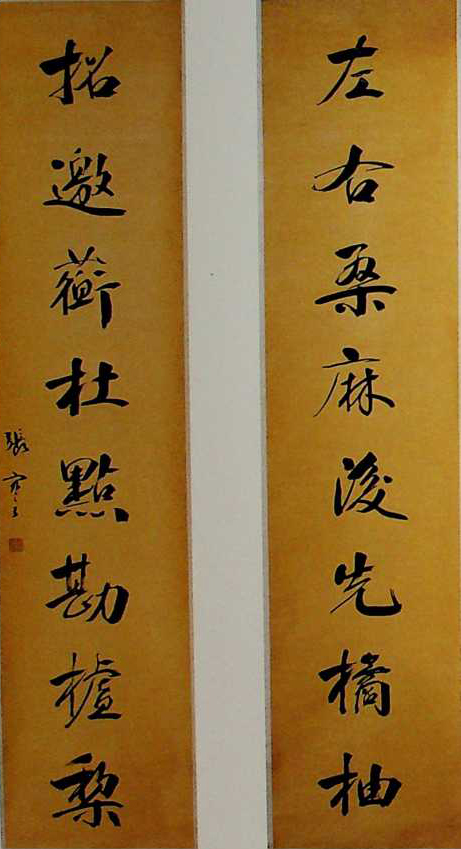 左右桑麻後先橘柚
招邀蘅杜點勘樝梨
張